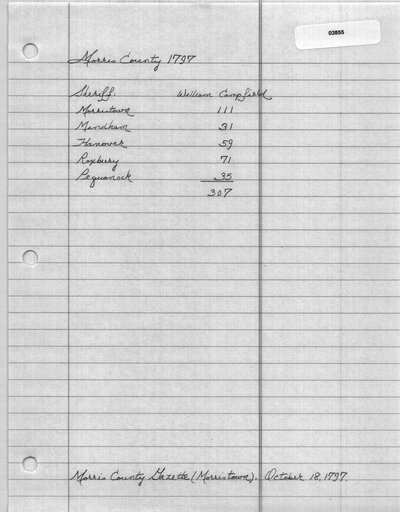 03855
Morris County 1797
Sheriff: William Campfield
Morristown 111
Mendham 31
Hanover 59
Roxbury 71
Pequanock 35
307
Morris County Gazette (Morristown). October 18, 1797.